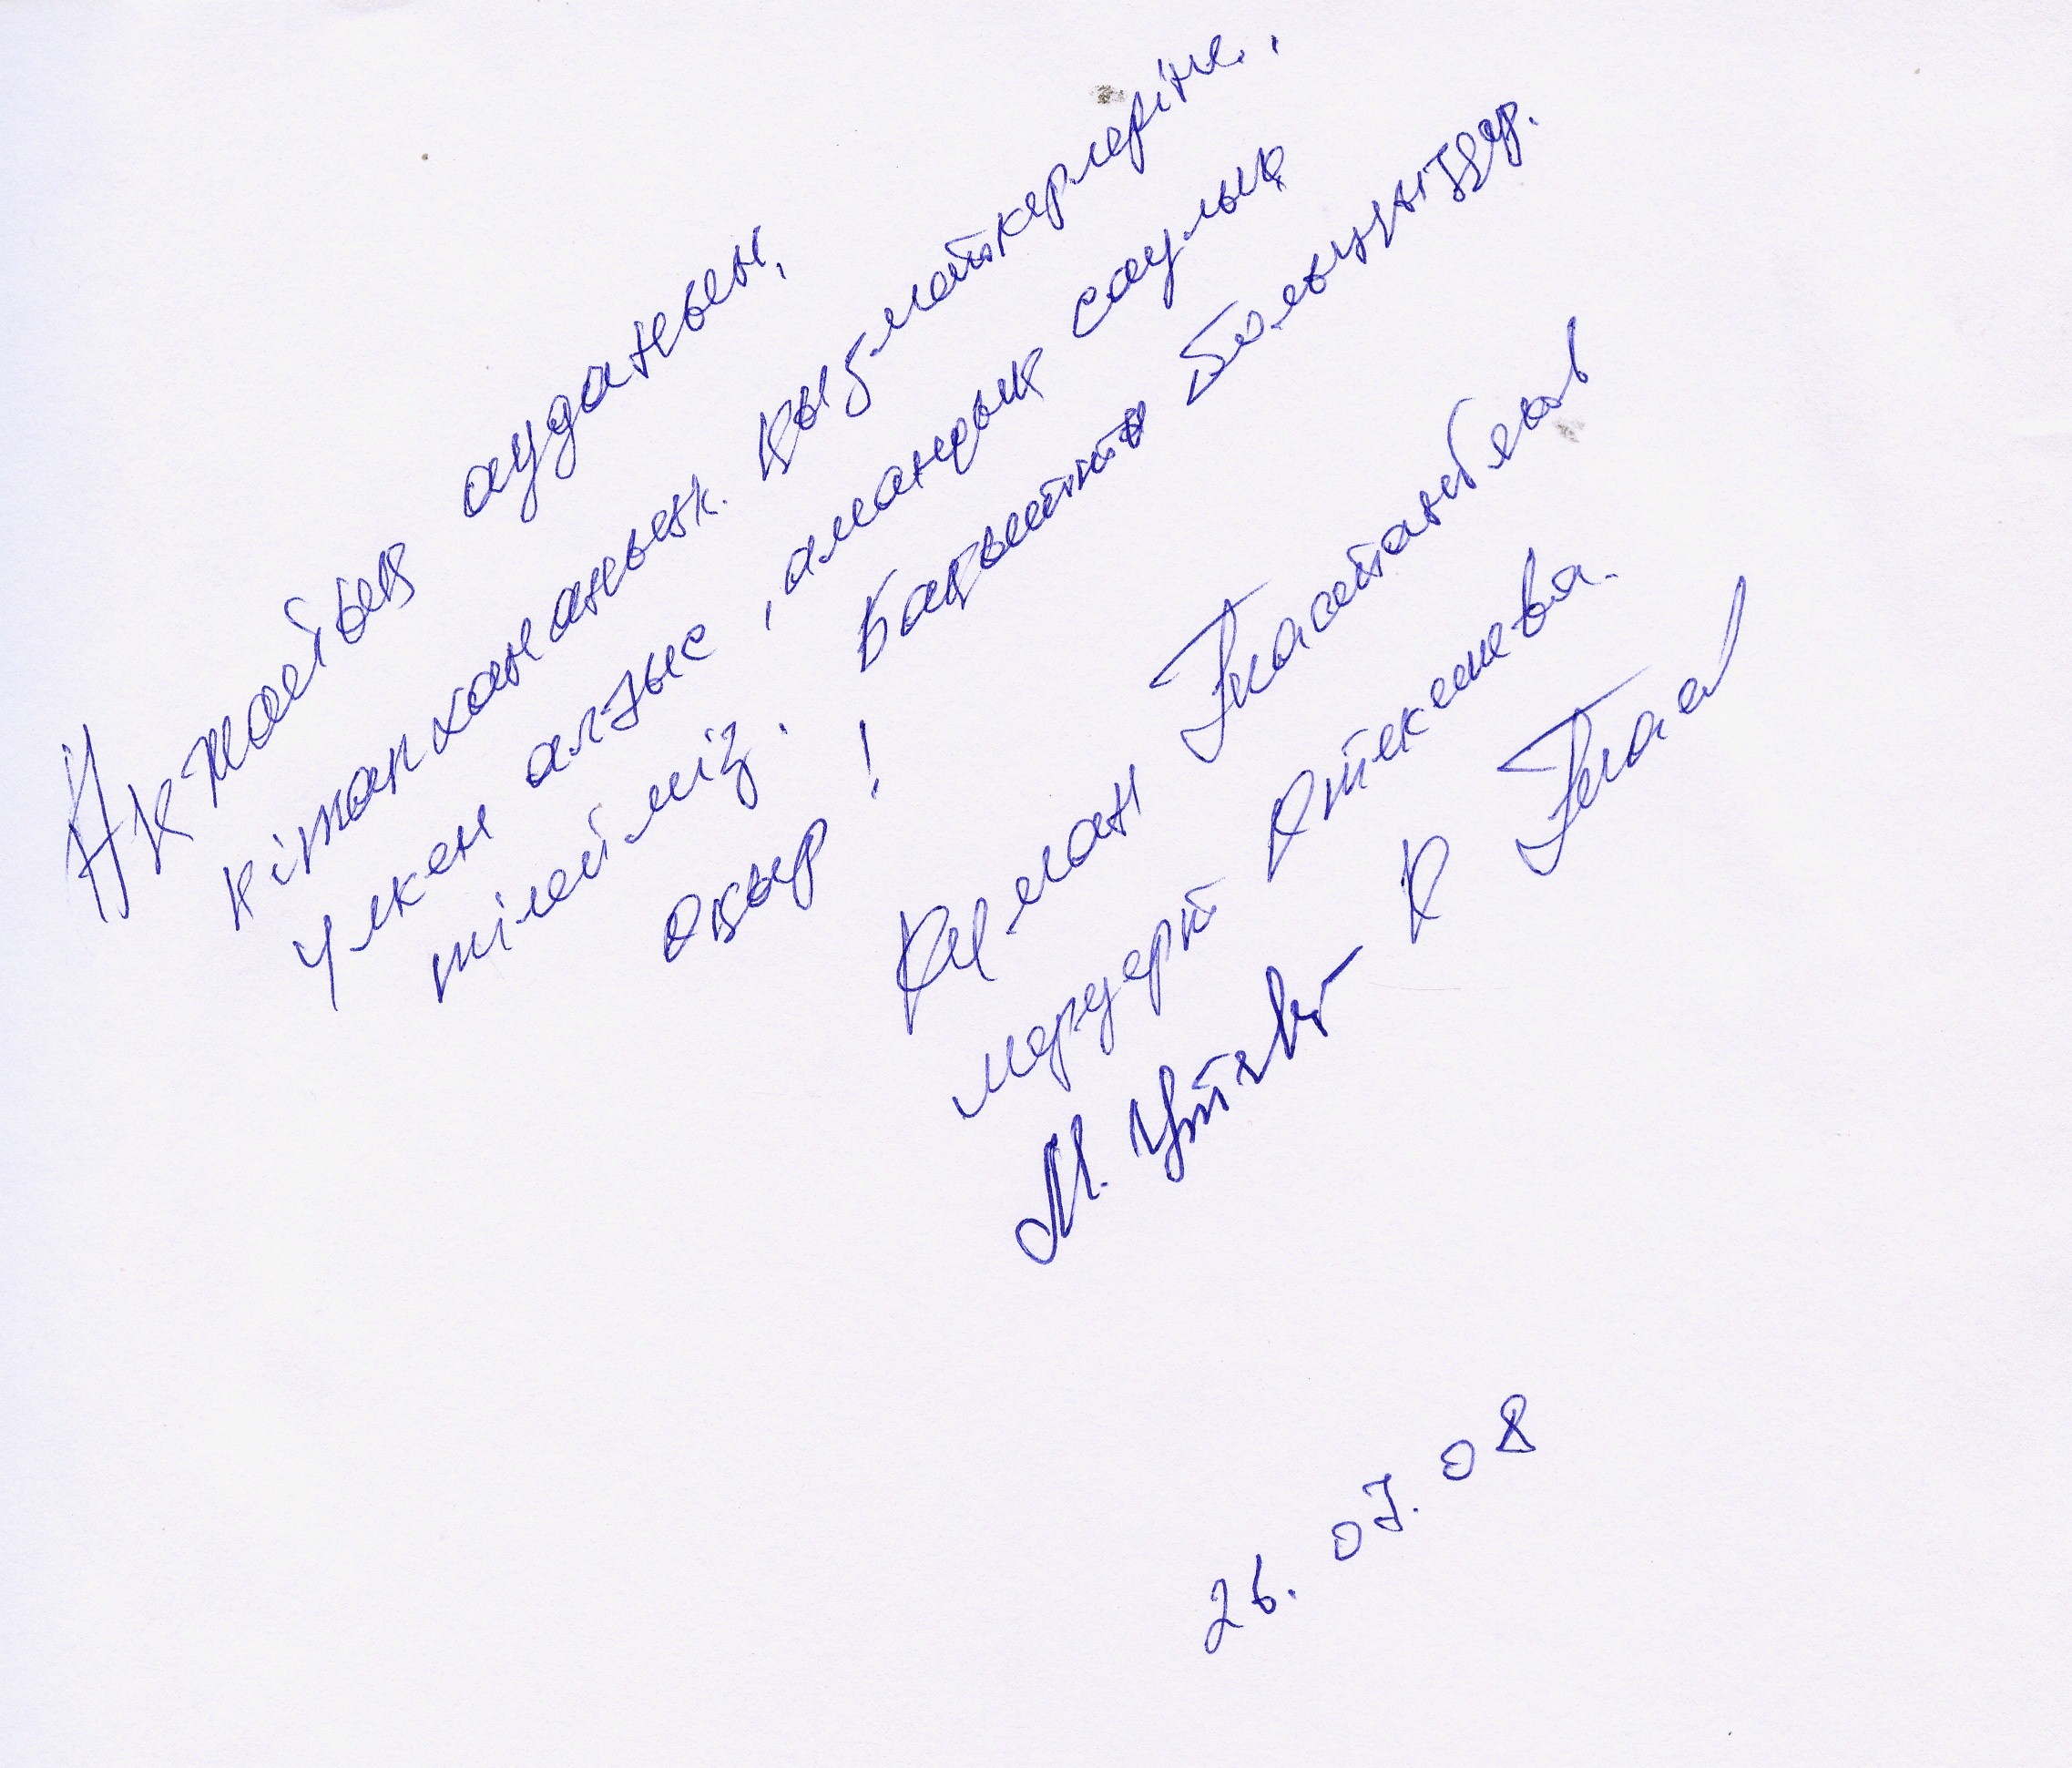 Ақжайық ауданың,
кітапхананың қызметкерлеріне,
үлкен алғыс, амандық саулық
тілейміз. Бақытты болыңыздар.
Оқыр!
Құрман Жастанбаев
Меруерт Өтекешева.
М.
26.07.08